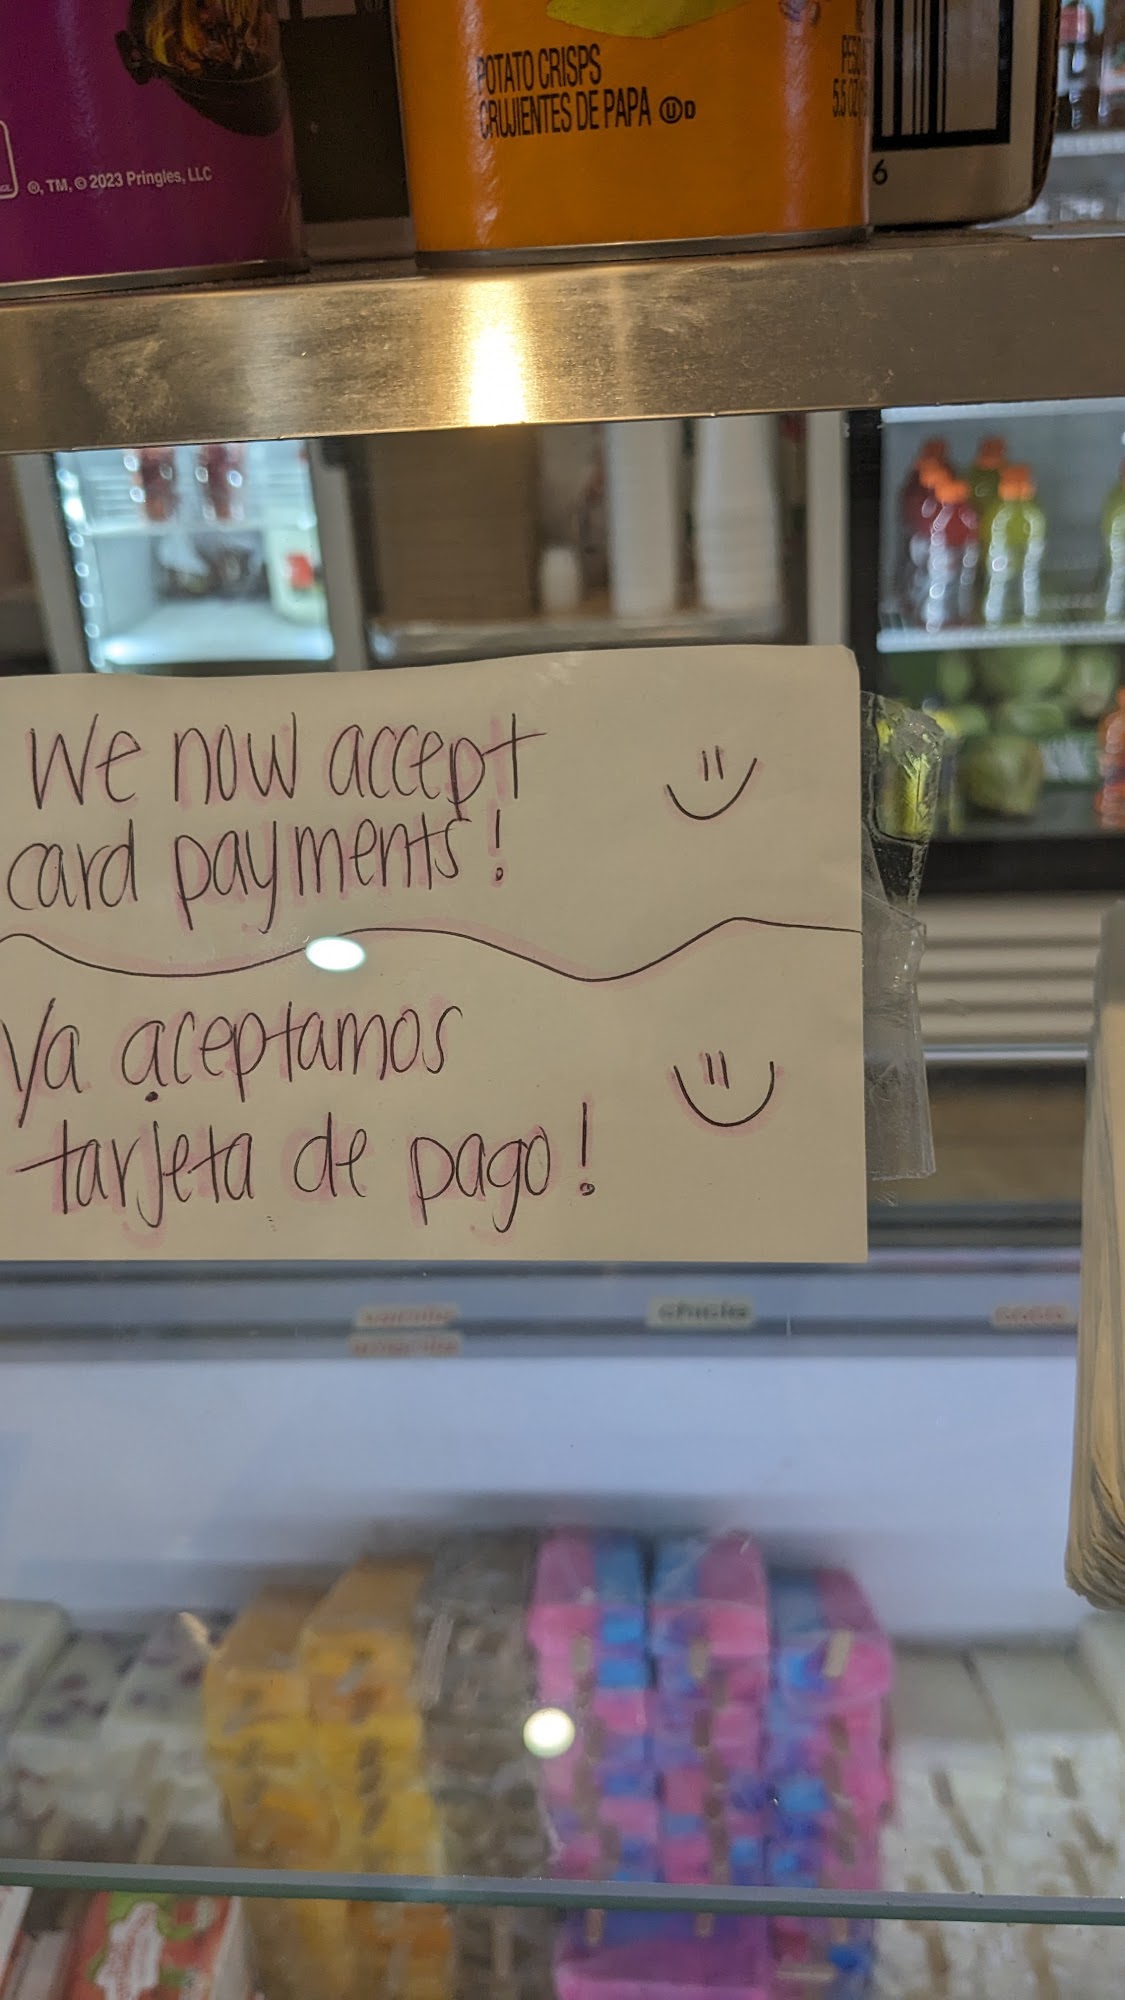 POTATO CRISPS
CRUJIENTES DE PAPA
5.5 OZ
®, TM, © 2023 Pringles, LLC
6
We now accept
card payments!
Ya aceptamos
tarjeta de pago!
chicle